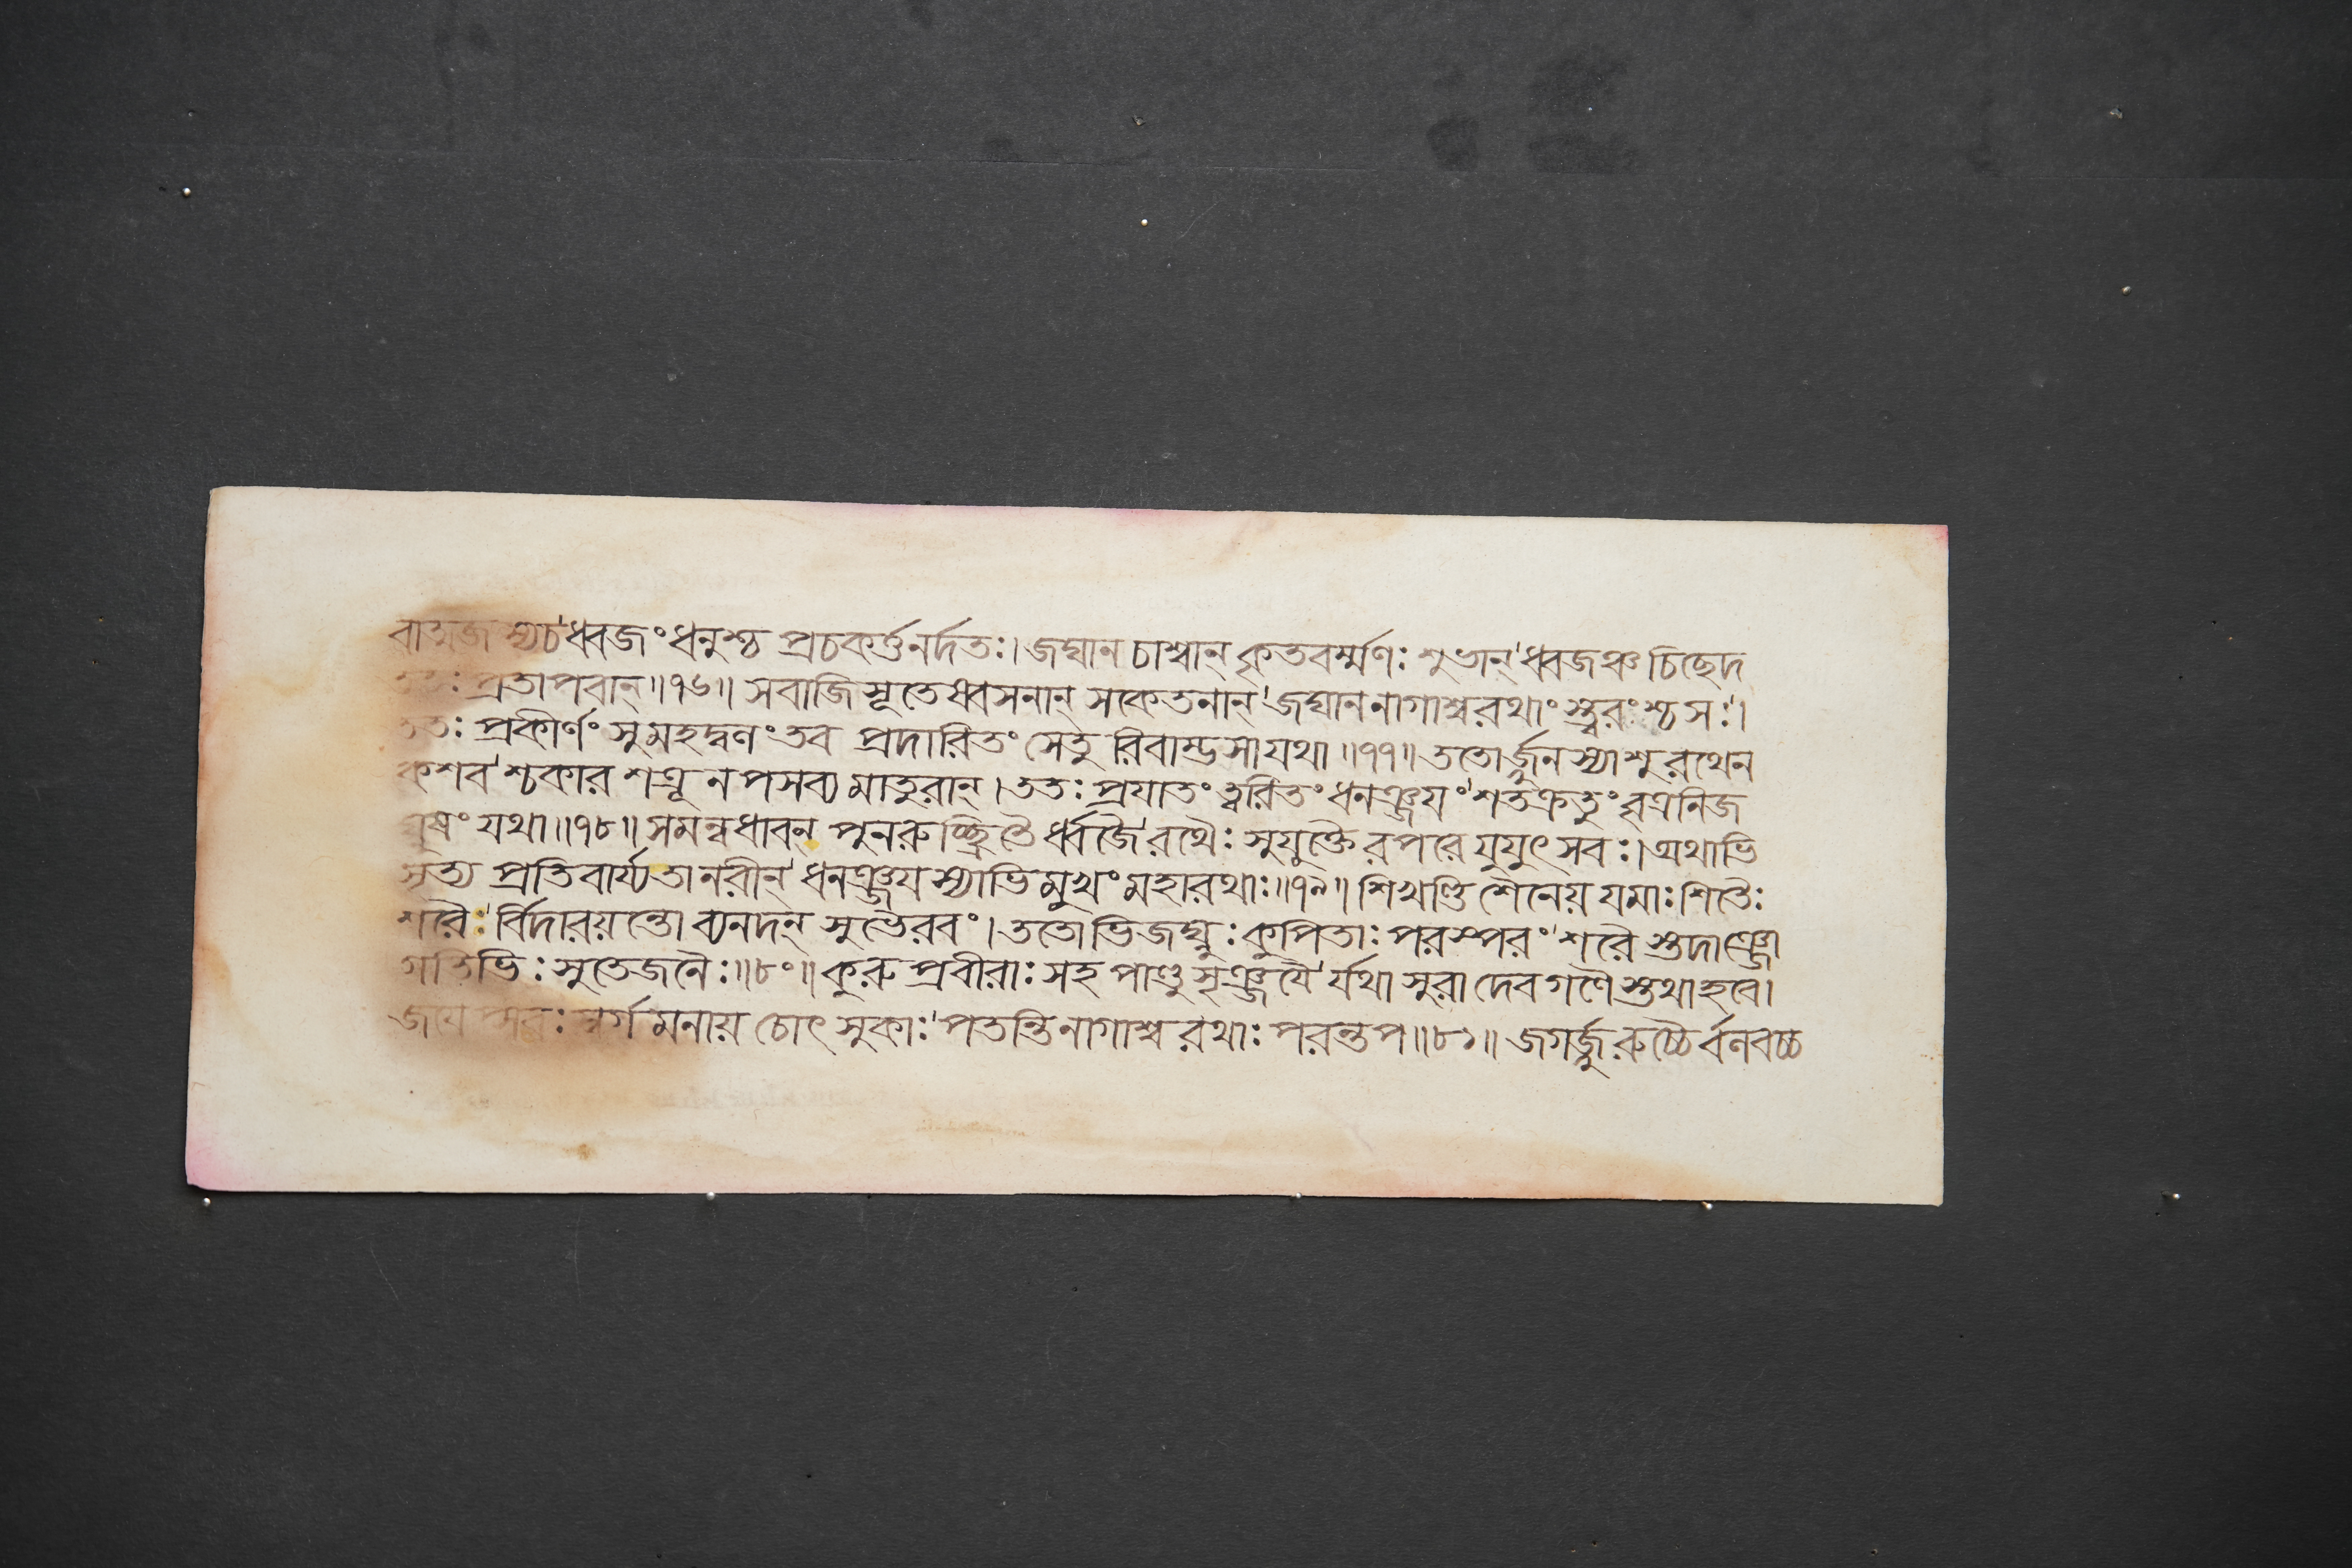 বাত্মজস্যচ'ধ্বজং ধনুশ্চ প্রচকর্ত্তনর্দতঃ। জঘান চাশ্বান্ কৃতবর্ম্মণঃ শুভান্'ধ্বজঞ্চ চিছেদ
ততঃ প্রতাপবান্॥৭৬॥ সবাজি সূতেধ্বসনান্ সকেতনান্'জঘাননাগাশ্বরথাং স্ত্বরংশ্চসঃ'।
ততঃ প্রকীর্ণং সুমহদ্বণংতব প্রদারিতং সেতু রিবাম্ভসাযথা॥৭৭॥ ততোর্জ্জুনস্যাশুরথেন
কশব'শ্চকার শত্রূনপসব্যমাতুরান্।ততঃ প্রযাতং ত্বরিতং ধনঞ্জযং'শতক্রতুং বৃত্রনিজ
ঘ্নুষং যথা॥৭৮॥ সমন্বধাবন্ পুনরুচ্ছ্রিতৈ র্ধ্বজৈ'রথৈঃ সুযুক্তৈরপরে যুযুৎসবঃ।অথাভি
সৃত্য প্রতিবার্য্যতানরীন্'ধনঞ্জযস্যাভিমুখং মহারথাঃ॥৭৯॥ শিখণ্ডিশৈনেয় যমাঃ শিতৈঃ
শরৈঃ'র্বিদারয়ন্তো ব্যনদন্ সুভৈরবং।ততোভিজঘ্নুঃ কুপিতাঃ পরস্পরং'শরৈস্তদাঞ্জো
গতিভিঃ সুতেজনৈঃ॥৮০॥ কুরুপ্রবীরাঃ সহ পাণ্ডুসৃঞ্জযৈ'র্যথাসুরা দেবগণৈস্তথাহবে।
জযেপ্সবঃ স্বর্গমনায় চোৎসুকাঃ'পতন্তিনাগাশ্বরথাঃ পরন্তপ॥৮১॥ জগর্জ্জুরুচ্চৈর্বনবচ্চ